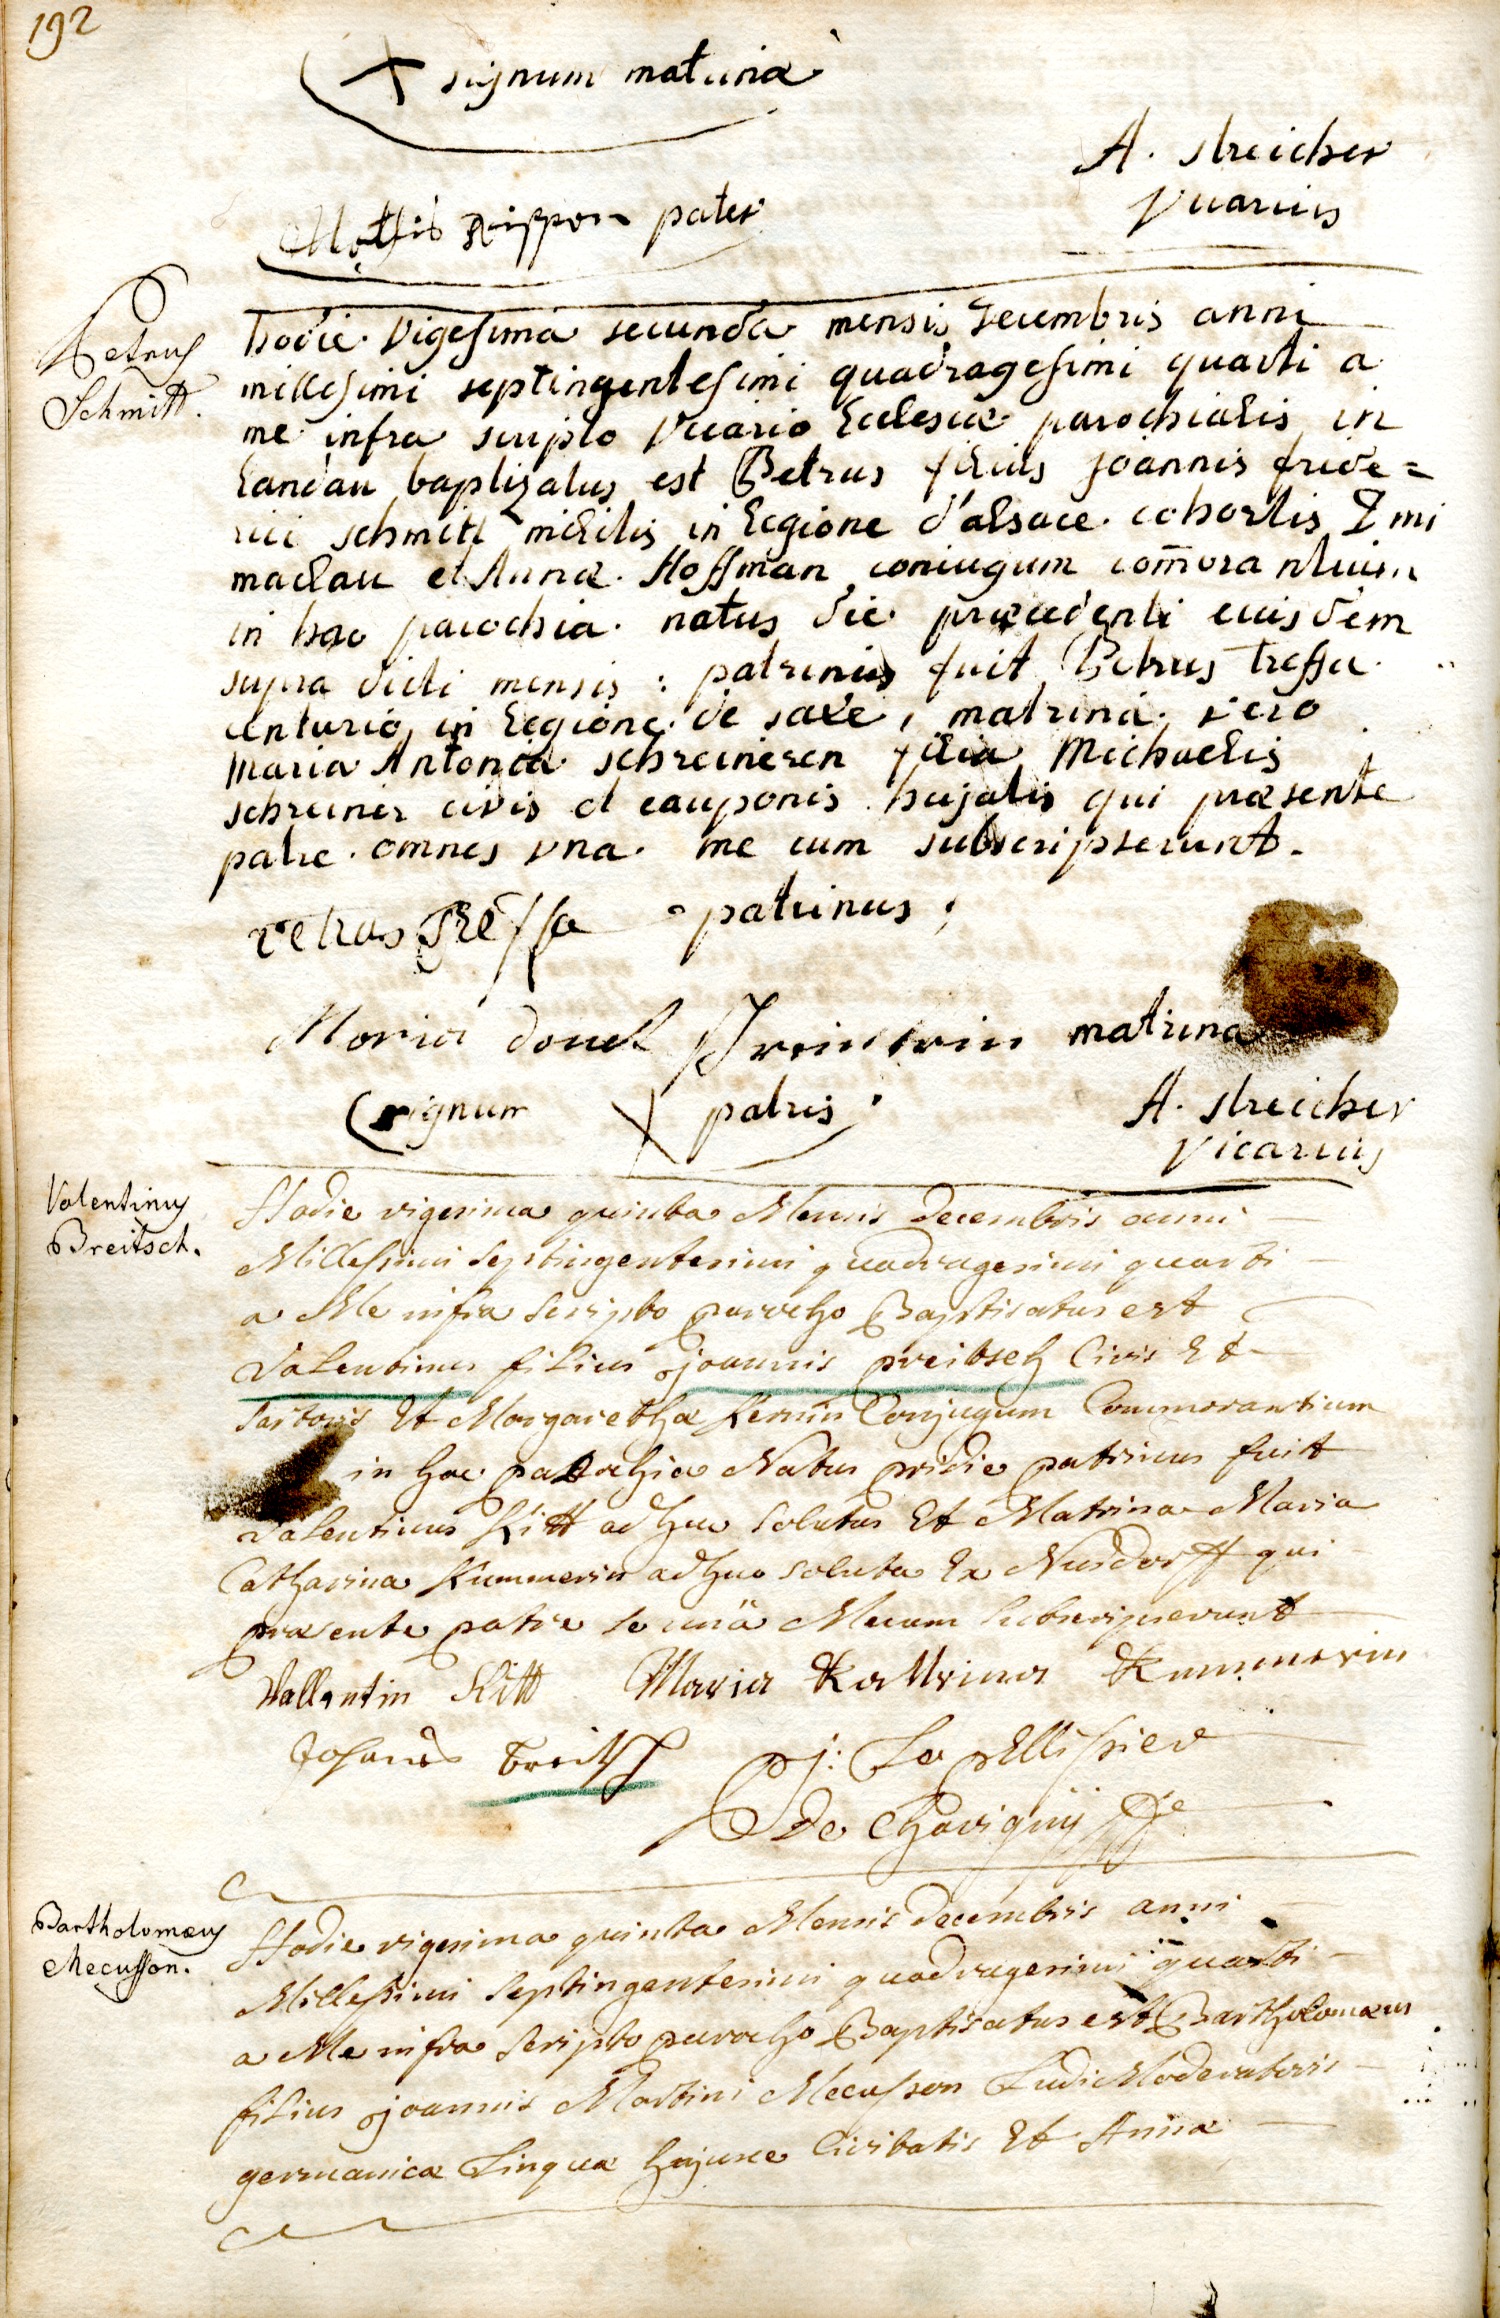 192
X signum matrina
A. streicher
Vicarius
Mathis pater
Petrus
Schmitt.
hodie vigesima secunda mensis Decembris anni
millesimi septingentesimi quadragesimi quarti a
me infra scripto Vicario Ecclesiæ parochialis in
Landau baptizatus est Petrus filius joannis fride=
rici schmitt militis in Legione d'alsace cohortis
et Annæ Hoffman coniugum com̄orantium
in hac parochia natus die præcedenti eiusdem
supra dicti mensis : patrinus fuit Petrus Treffa
centurio in Legione de saxe, matrina vero
Maria Antonia schreineren filia Michaelis
schreiner civis et cauponis hujatis qui præsente
patre omnes una me cum subscripserunt.
petrus Treffa patrinus ;
Maria matrina
signum X patris ;
A. streicher
Vicarius
Valentinus
Breitsch.
Hodie vigesima quinta Mensis Decembris anni
Millessimi Septingentesimi quadragesimi quarti
a Me infra Scripto parocho Baptisatus est
Valentinus filius joannis preitsch Civis Et
Sartoris Et Margarethæ Kernin Conjugum Commorantium
in hac parochia Natus pridie patrinus fuit
Valentinus Kitt adhuc Solutus Et Matrina Maria
Catharina Kummerin adhuc Soluta Ex Nusdorff qui
præsente patre se unà Mecum subscripserunt
Vallentin Kitt Maria Kattrina Kummerin
Johanes breitsch
j: Le pellissier
De Chavignij
Bartholomæus
Mecusson.
Hodie vigesima quinta Mensis Decembris anni
Millessimi Septingentesimi quadragesimi quarti
a Me infra Scripto parocho Baptisatus est Bartholomæus
filius joannis Martini Mecusson Ludi Moderatoris
germanicæ Linguæ hujusce Civitatis Et Annæ